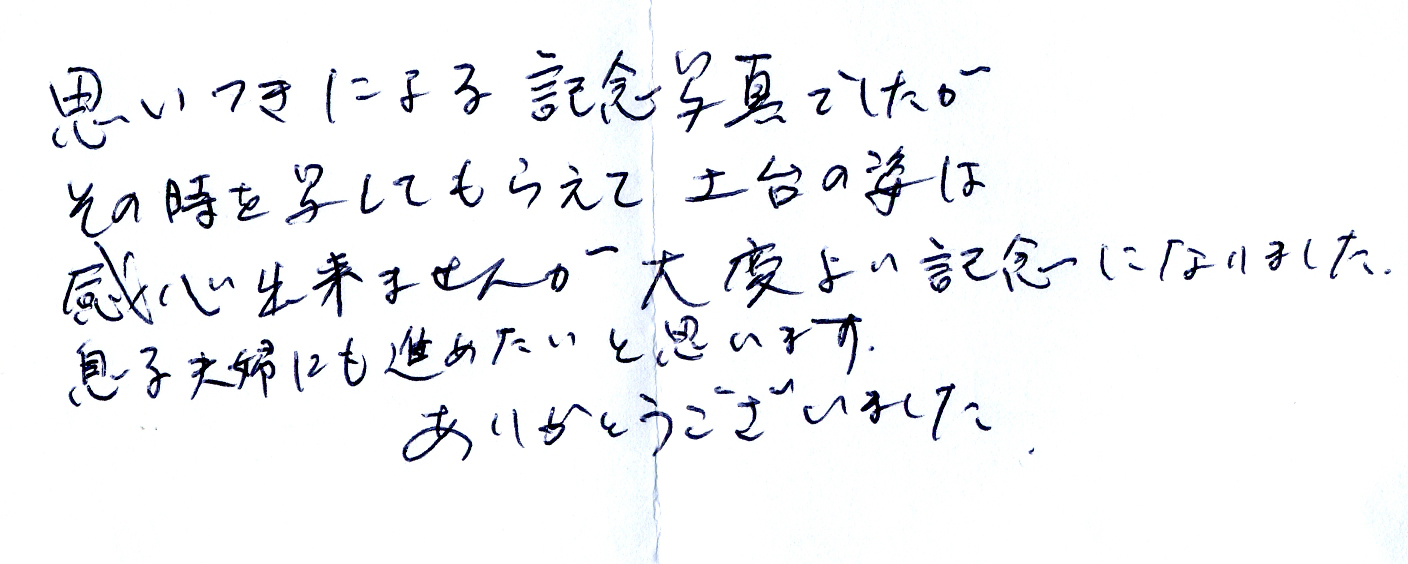 思いつきによる記念写真でしたが
その時を写してもらえて土台の姿は
感心出来ませんが大変よい記念になりました.
息子夫婦にも進めたいと思います.
ありがとうございました.